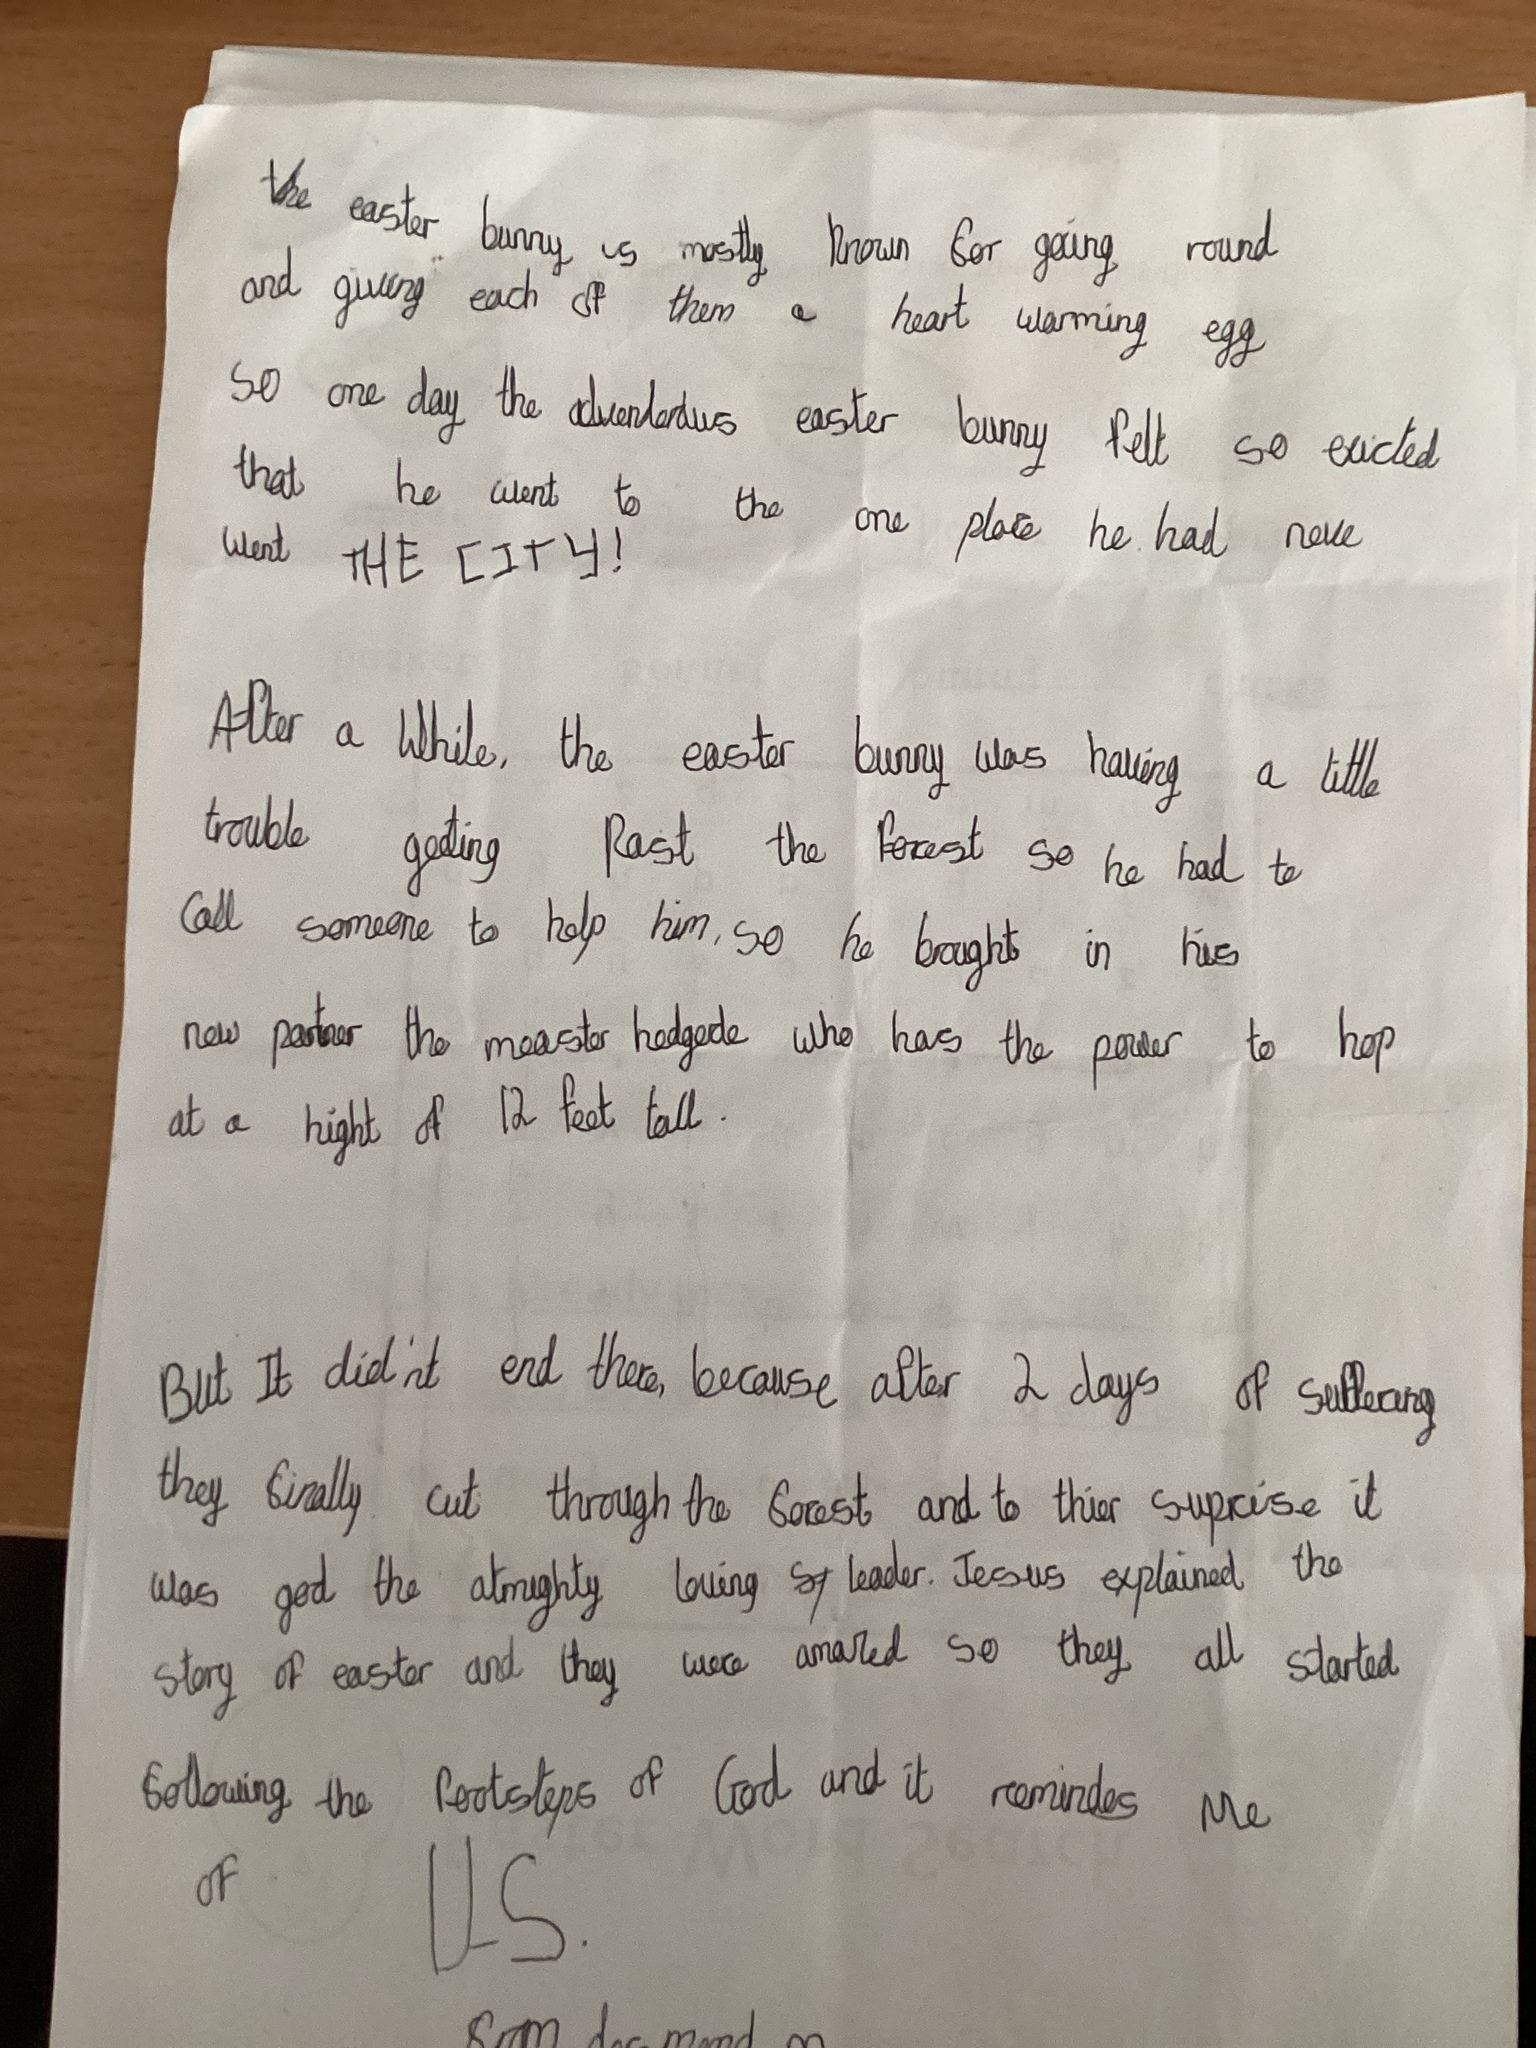 the easter bunny is mostly known for going round
and giving each of them a heart warming egg
so one day the advendordus easter bunny felt so exicted
that he went to the one place he had neve
went THE CITY!
After a While, the easter bunny was having a little
trouble geeting Past the forest so he had to
Call someone to help him, so he brought in his
new partner the measter hedgede who has the power to hop
at a hight of 12 feet tall.
But It did'nt end there, because after 2 days of suffering
they finally cut through the forest and to thier suprcise it
was god the almighty loving leader. Jesus explained the
story of easter and they were amazed so they all started
following the footsteps of God and it remindes Me
of US.
From desmond